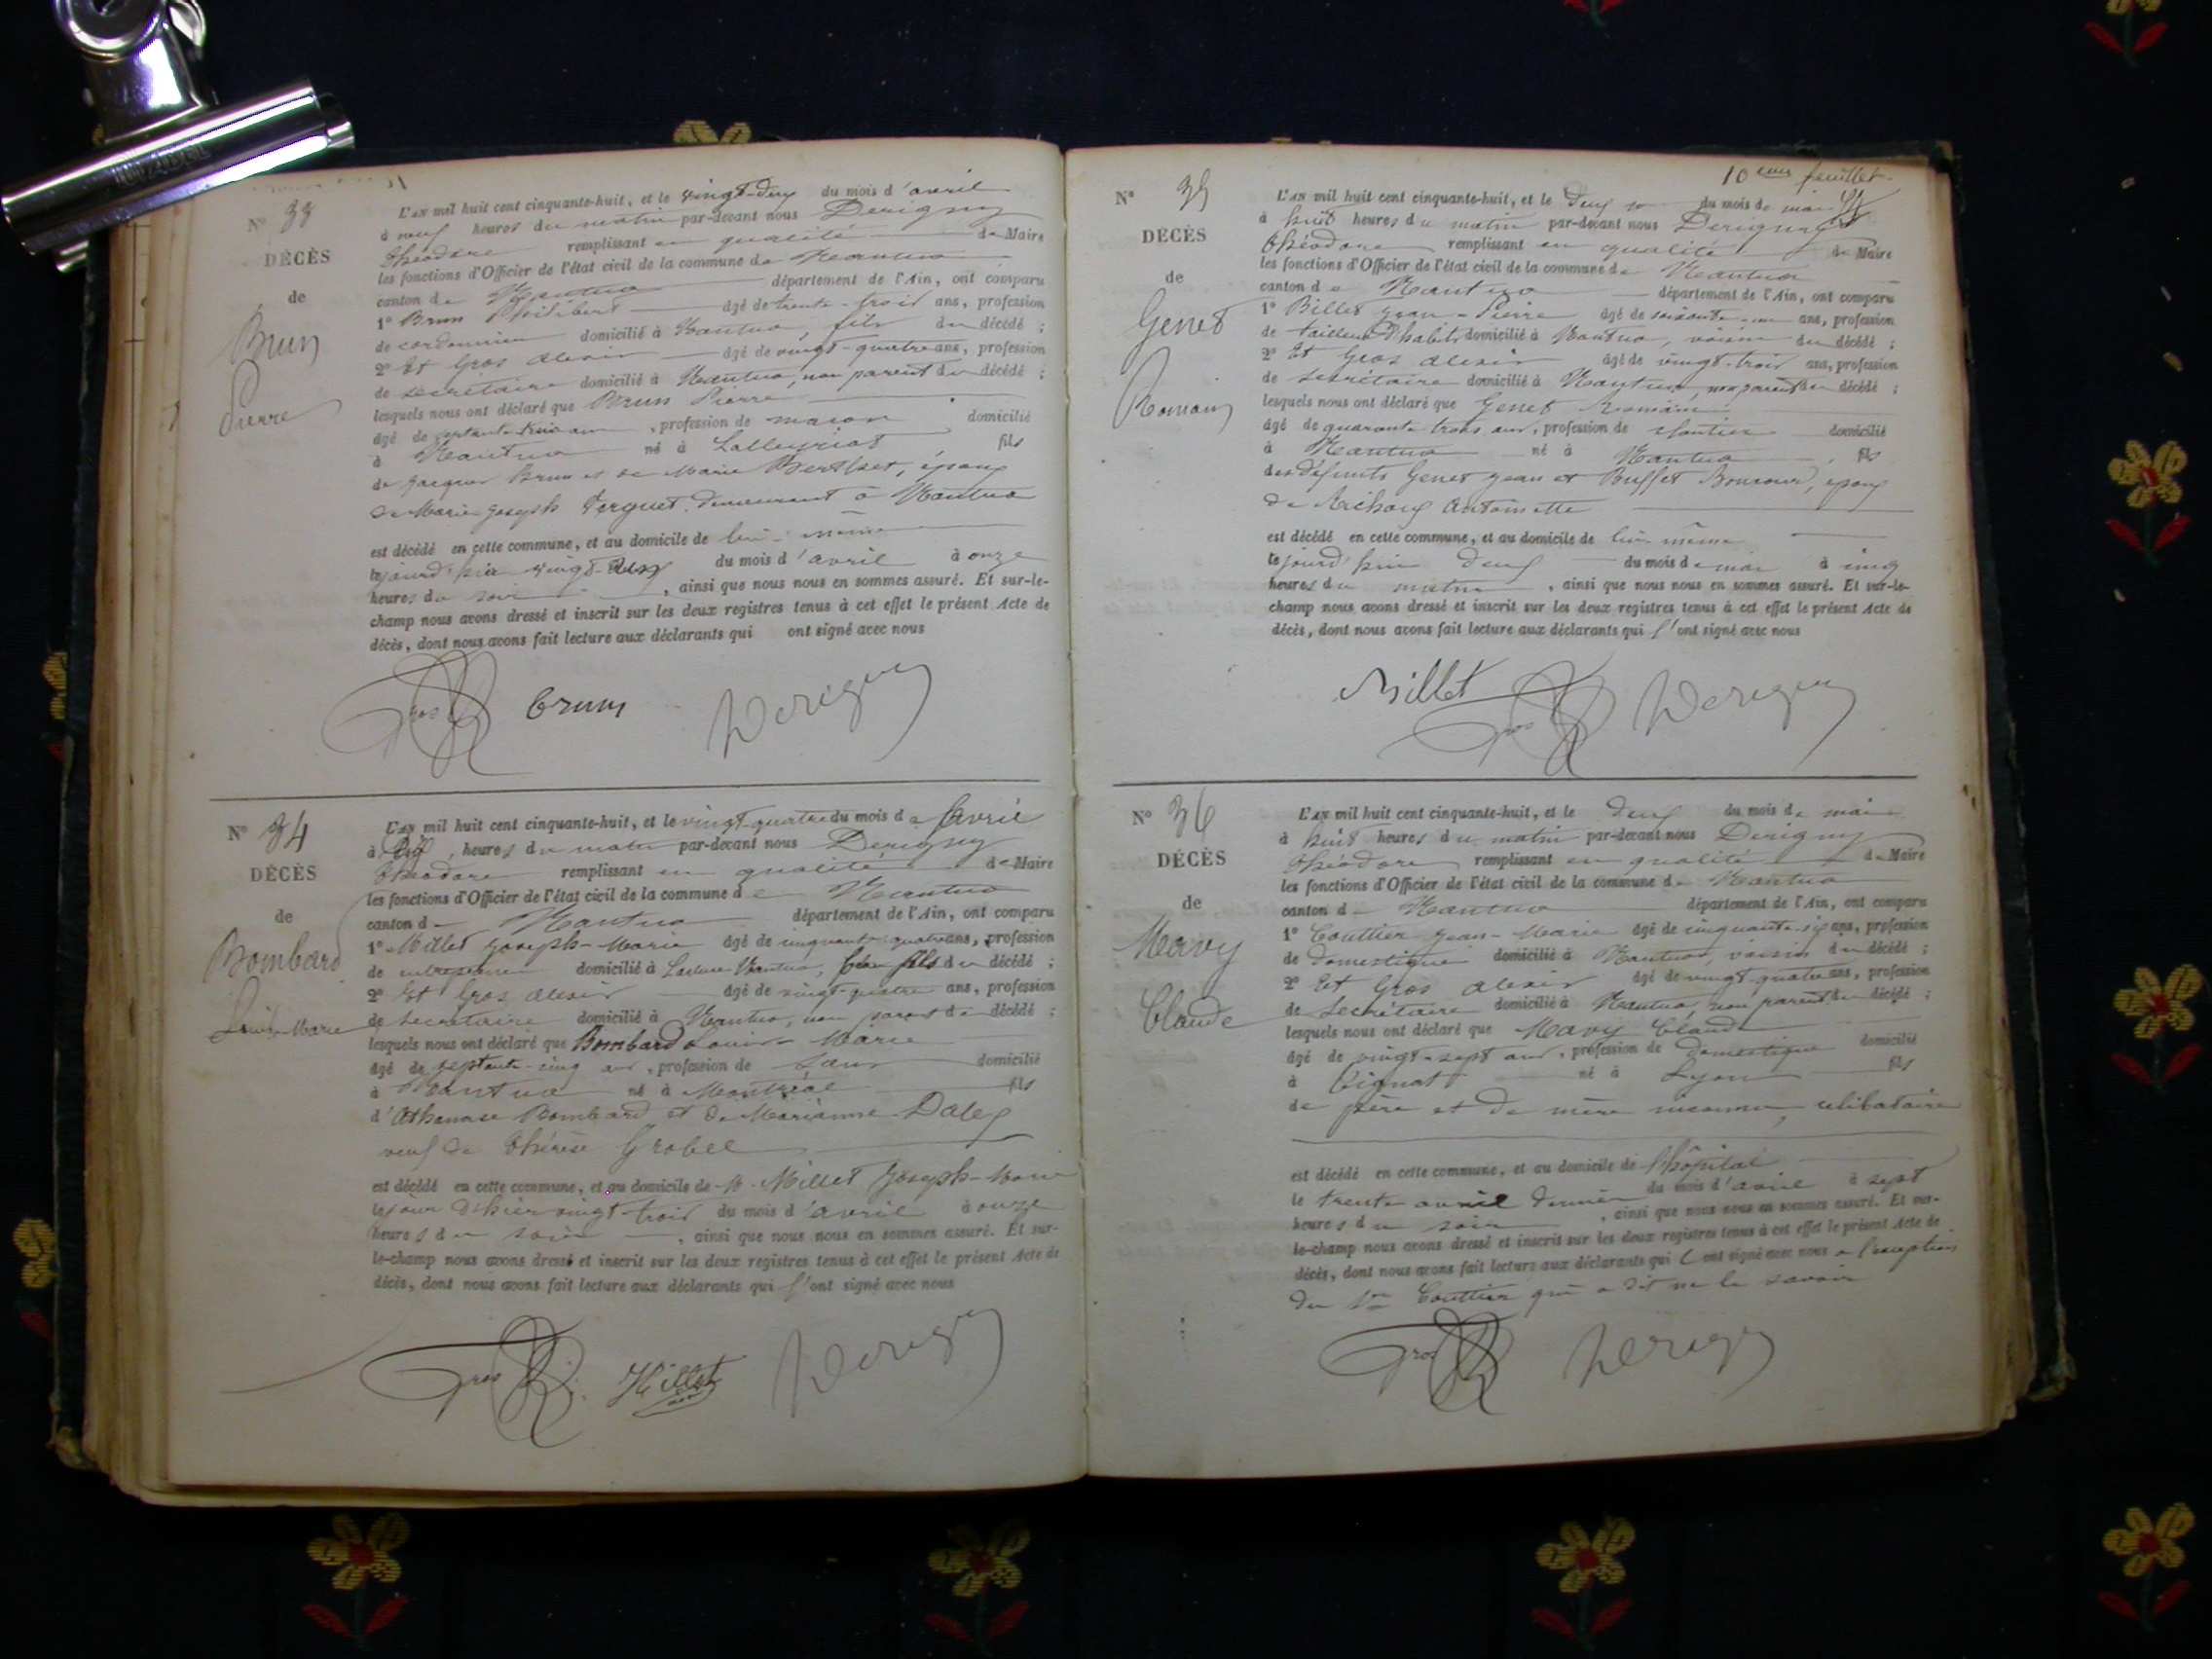 N° 33
DÉCÈS
de
Brun
Pierre
L'an mil huit cent cinquante-huit, et le vingt-deux du mois d'avril
à neuf heures du matin par-devant nous Derigny
Théodore remplissant en qualité de Maire
les fonctions d'Officier de l'état civil de la commune de Nantua
canton de Nantua département de l'Ain, ont comparu
1° Brun Philibert âgé de trente-trois ans, profession
de cordonnier domicilié à Nantua, fils du décédé ;
2° Et Gros Alexis âgé de vingt-quatre ans, profession
de secrétaire domicilié à Nantua, non parent du décédé ;
lesquels nous ont déclaré que Brun Pierre
âgé de septante trois ans, profession de maçon domicilié
à Nantua né à Lalleyriat fils
de Jacques Brun et de Marie Berthet, époux
de Marie Joseph Perquet demeurant à Nantua
est décédé en cette commune, et au domicile de lui-même
le jourd'hui vingt-deux du mois d'avril à onze
heures du soir, ainsi que nous nous en sommes assuré. Et sur-le-
champ nous avons dressé et inscrit sur les deux registres tenus à cet effet le présent Acte de
décès, dont nous avons fait lecture aux déclarants qui ont signé avec nous
Gros Brun Derigny
N° 34
DÉCÈS
de
Bombard
Louis-Marie
L'an mil huit cent cinquante-huit, et le vingt-quatre du mois de avril
à heures du matin par-devant nous Derigny
Théodore remplissant en qualité de Maire
les fonctions d'Officier de l'état civil de la commune de Nantua
canton de Nantua département de l'Ain, ont comparu
1° Millet Joseph-Marie âgé de cinquante-quatre ans, profession
de entrepreneur domicilié à Nantua, fils du décédé ;
2° Et Gros Alexis âgé de vingt-quatre ans, profession
de secrétaire domicilié à Nantua, non parent du décédé ;
lesquels nous ont déclaré que Bombard Louis-Marie
âgé de septante-cinq ans, profession de sans domicilié
à Nantua né à Montréal fils
d'Athanase Bombard et de Marianne Dalex
veuf de Thérèse Grobel
est décédé en cette commune, et au domicile de M. Millet Joseph-Marie
le jour d'hier vingt-trois du mois d'avril à onze
heures du soir, ainsi que nous nous en sommes assuré. Et sur-
le-champ nous avons dressé et inscrit sur les deux registres tenus à cet effet le présent Acte de
décès, dont nous avons fait lecture aux déclarants qui l'ont signé avec nous
Gros Millet Derigny
10ème feuillet.
N° 35
DÉCÈS
de
Genet
Romain
L'an mil huit cent cinquante-huit, et le deux du mois de mai
à huit heures du matin par-devant nous Derigny
Théodore remplissant en qualité de Maire
les fonctions d'Officier de l'état civil de la commune de Nantua
canton de Nantua département de l'Ain, ont comparu
1° Billet Jean-Pierre âgé de soixante-un ans, profession
de tailleur d'habits domicilié à Nantua, voisin du décédé ;
2° Et Gros Alexis âgé de vingt-trois ans, profession
de secrétaire domicilié à Nantua, non parent du décédé ;
lesquels nous ont déclaré que Genet Romain
âgé de quarante trois ans, profession de domicilié
à Nantua né à Nantua, fils
des défunts Genet Jean et Buffet, époux
de Antoinette
est décédé en cette commune, et au domicile de lui-même
le jourd'hui deux du mois de mai à cinq
heures du matin, ainsi que nous nous en sommes assuré. Et sur-le-
champ nous avons dressé et inscrit sur les deux registres tenus à cet effet le présent Acte de
décès, dont nous avons fait lecture aux déclarants qui l'ont signé avec nous
Billet Gros Derigny
N° 36
DÉCÈS
de
Mavy
Claude
L'an mil huit cent cinquante-huit, et le deux du mois de mai
à huit heures du matin par-devant nous Derigny
Théodore remplissant en qualité de Maire
les fonctions d'Officier de l'état civil de la commune de Nantua
canton de Nantua département de l'Ain, ont comparu
1° Couttier Jean-Marie âgé de cinquante-six ans, profession
de domestique domicilié à Nantua, voisin du décédé ;
2° Et Gros Alexis âgé de vingt-quatre ans, profession
de Secrétaire domicilié à Nantua, non parent du décédé ;
lesquels nous ont déclaré que Mavy Claude
âgé de vingt-sept ans, profession de domestique domicilié
à Cignat né à Lyon fils
de père et de mère inconnus, célibataire
est décédé en cette commune, et au domicile de l'hôpital
le trente avril dernier du mois d'avril à sept
heures du soir, ainsi que nous nous en sommes assuré. Et sur-
le-champ nous avons dressé et inscrit sur les deux registres tenus à cet effet le présent Acte de
décès, dont nous avons fait lecture aux déclarants qui l'ont signé avec nous à l'exception
du Sr Couttier qui a dit ne le savoir
Gros Derigny